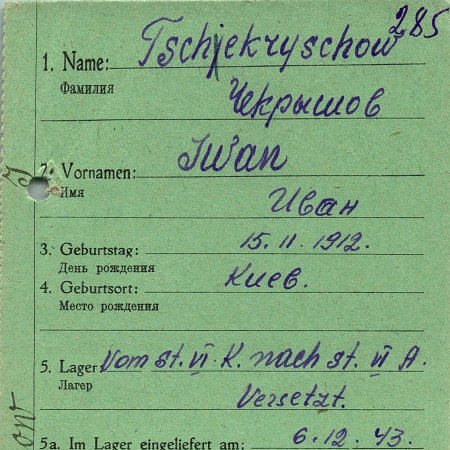 285
1. Name: Tschjekryschow
Фамилия
Чекрышов
2. Vornamen: Iwan
Имя
Иван
3. Geburtstag: 15. 11. 1912.
День рождения
4. Geburtsort: Киев.
Место рождения
5. Lager Vom st. VI. K. nach st. VI A.
Лагер
Versetzt.
5a. Im Lager eingeliefert am: 6. 12. 43.